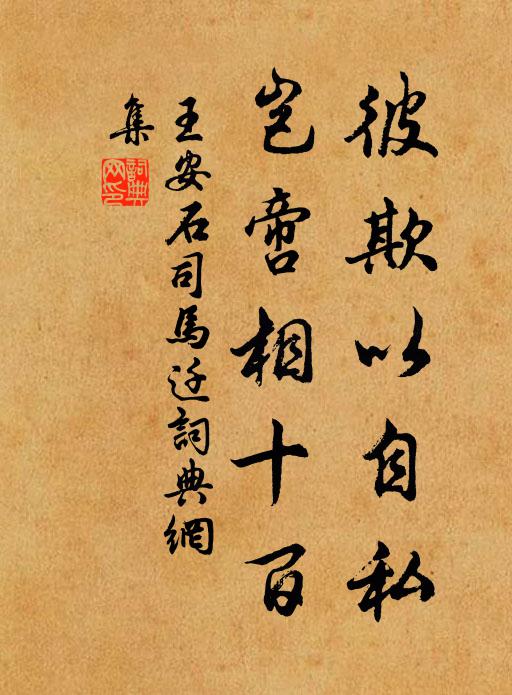 彼欺以自私
岂啻相十百
王安石司馬迁詞典網
集
詞典
网印